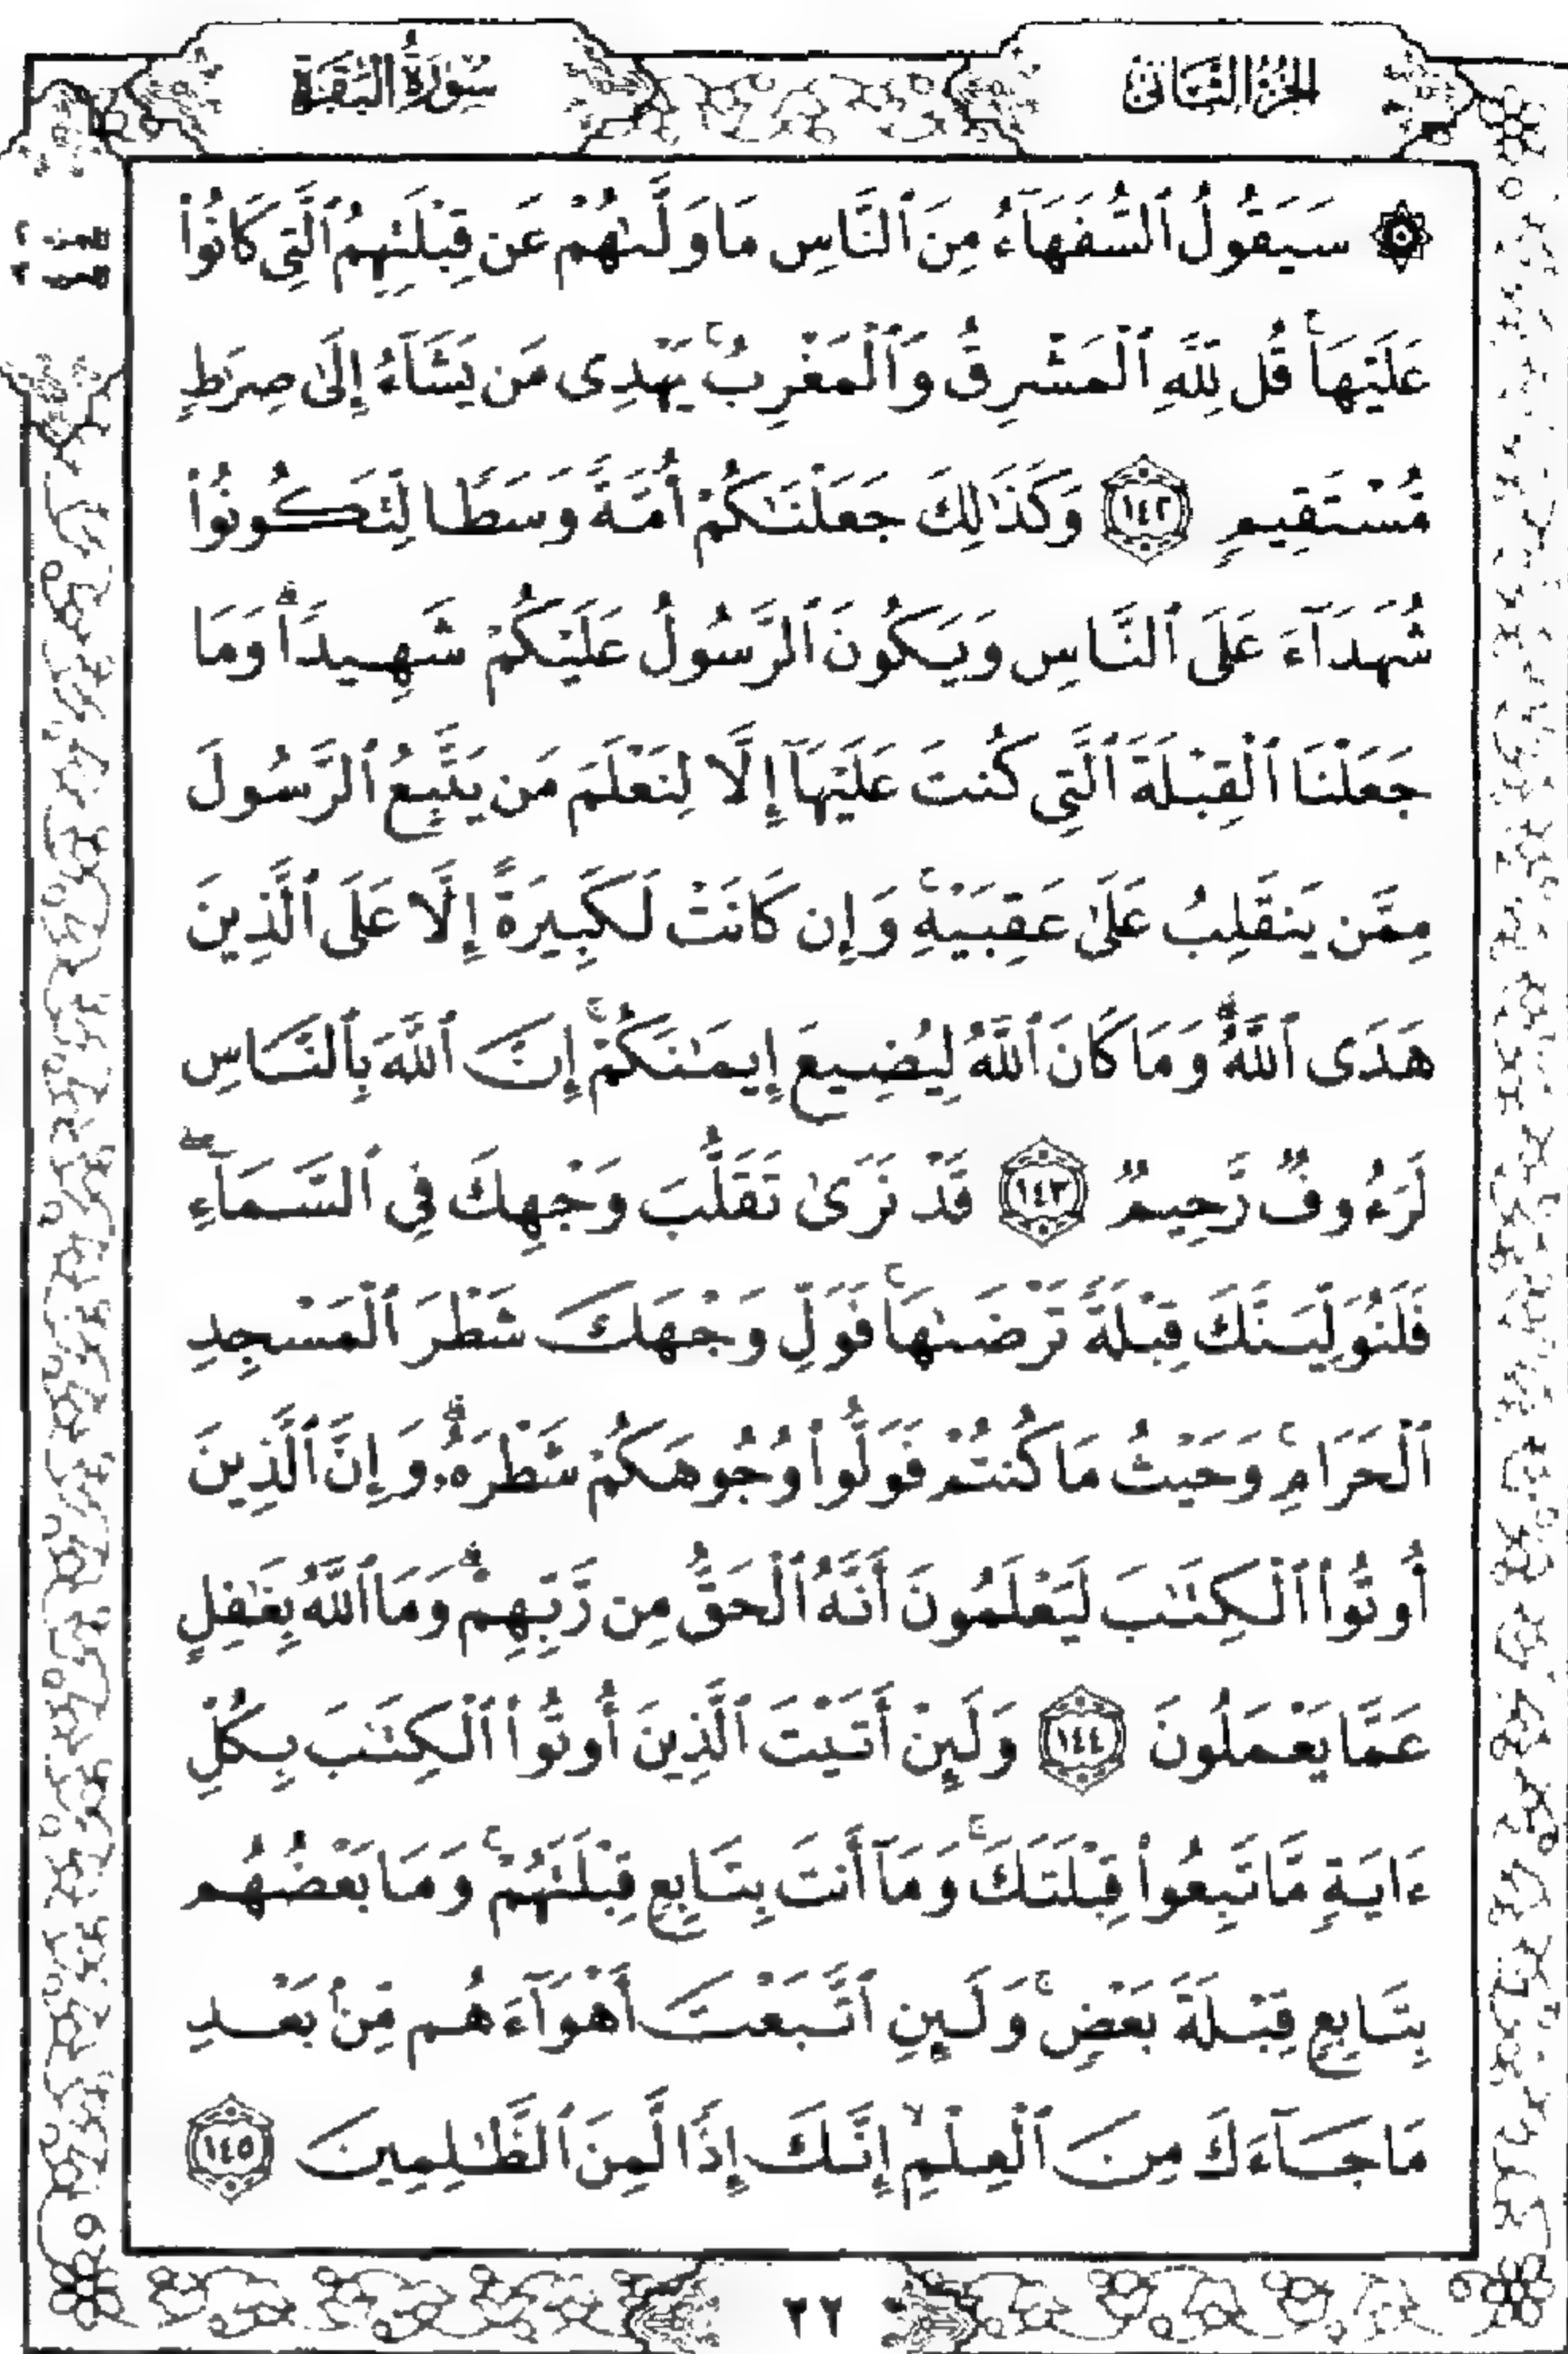 الجزء الثاني
سورة البقرة
۞ سَيَقُولُ ٱلسُّفَهَآءُ مِنَ ٱلنَّاسِ مَا وَلَّىٰهُمْ عَن قِبْلَتِهِمُ ٱلَّتِى كَانُوا۟
عَلَيْهَا ۚ قُل لِّلَّهِ ٱلْمَشْرِقُ وَٱلْمَغْرِبُ ۚ يَهْدِى مَن يَشَآءُ إِلَىٰ صِرَٰطٍ
مُّسْتَقِيمٍ ١٤٢ وَكَذَٰلِكَ جَعَلْنَـٰكُمْ أُمَّةً وَسَطًا لِّتَكُونُوا۟
شُهَدَآءَ عَلَى ٱلنَّاسِ وَيَكُونَ ٱلرَّسُولُ عَلَيْكُمْ شَهِيدًا ۗ وَمَا
جَعَلْنَا ٱلْقِبْلَةَ ٱلَّتِى كُنتَ عَلَيْهَآ إِلَّا لِنَعْلَمَ مَن يَتَّبِعُ ٱلرَّسُولَ
مِمَّن يَنقَلِبُ عَلَىٰ عَقِبَيْهِ ۚ وَإِن كَانَتْ لَكَبِيرَةً إِلَّا عَلَى ٱلَّذِينَ
هَدَى ٱللَّهُ ۗ وَمَا كَانَ ٱللَّهُ لِيُضِيعَ إِيمَـٰنَكُمْ ۚ إِنَّ ٱللَّهَ بِٱلنَّاسِ
لَرَءُوفٌ رَّحِيمٌ ١٤٣ قَدْ نَرَىٰ تَقَلُّبَ وَجْهِكَ فِى ٱلسَّمَآءِ ۖ
فَلَنُوَلِّيَنَّكَ قِبْلَةً تَرْضَىٰهَا ۚ فَوَلِّ وَجْهَكَ شَطْرَ ٱلْمَسْجِدِ
ٱلْحَرَامِ ۚ وَحَيْثُ مَا كُنتُمْ فَوَلُّوا۟ وُجُوهَكُمْ شَطْرَهُۥ ۗ وَإِنَّ ٱلَّذِينَ
أُوتُوا۟ ٱلْكِتَـٰبَ لَيَعْلَمُونَ أَنَّهُ ٱلْحَقُّ مِن رَّبِّهِمْ ۗ وَمَا ٱللَّهُ بِغَـٰفِلٍ
عَمَّا يَعْمَلُونَ ١٤٤ وَلَئِنْ أَتَيْتَ ٱلَّذِينَ أُوتُوا۟ ٱلْكِتَـٰبَ بِكُلِّ
ءَايَةٍ مَّا تَبِعُوا۟ قِبْلَتَكَ ۚ وَمَآ أَنتَ بِتَابِعٍ قِبْلَتَهُمْ ۚ وَمَا بَعْضُهُم
بِتَابِعٍ قِبْلَةَ بَعْضٍ ۚ وَلَئِنِ ٱتَّبَعْتَ أَهْوَآءَهُم مِّنۢ بَعْدِ
مَا جَآءَكَ مِنَ ٱلْعِلْمِ ۙ إِنَّكَ إِذًا لَّمِنَ ٱلظَّـٰلِمِينَ ١٤٥
٢٢